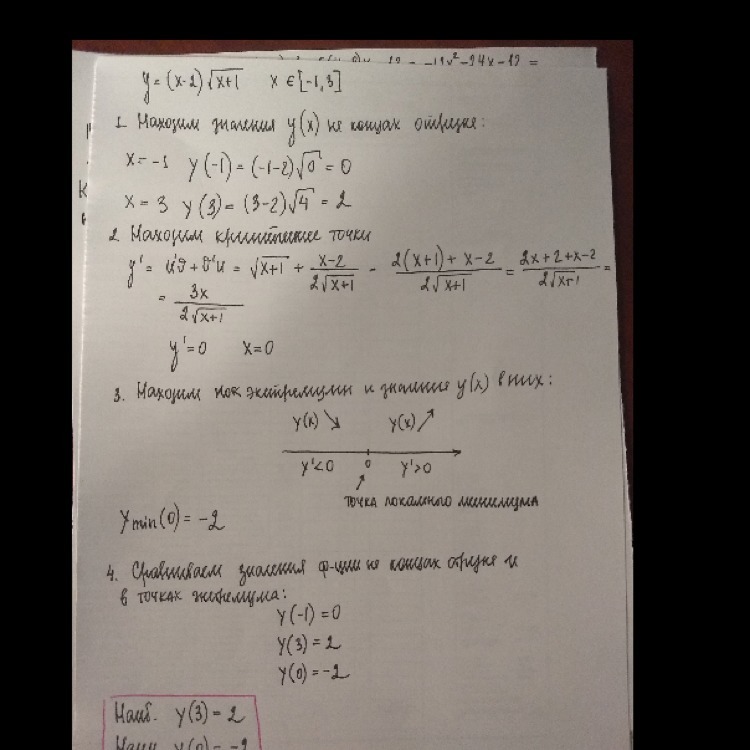 -12x² -24x-12 =
y = (x-2)√(x+1) x ∈ [-1,3]
1. Находим значения y(x) на концах отрезка:
x = -1 y(-1) = (-1-2)√0 = 0
x = 3 y(3) = (3-2)√4 = 2
2. Находим критические точки
y' = u'v + v'u = √(x+1) + (x-2)/(2√(x+1)) = (2(x+1) + x-2)/(2√(x+1)) = (2x+2+x-2)/(2√(x+1)) =
= 3x/(2√(x+1))
y'=0 x=0
3. Находим лок экстремумы и значения y(x) в них:
y(x) ↘ y(x) ↗
y'<0 0 y'>0
точка локального минимума
ymin(0) = -2
4. Сравниваем значения ф-ции на концах отрезка и
в точках экстремума:
y(-1) = 0
y(3) = 2
y(0) = -2
Наиб. y(3) = 2
Наим y(0) = -2